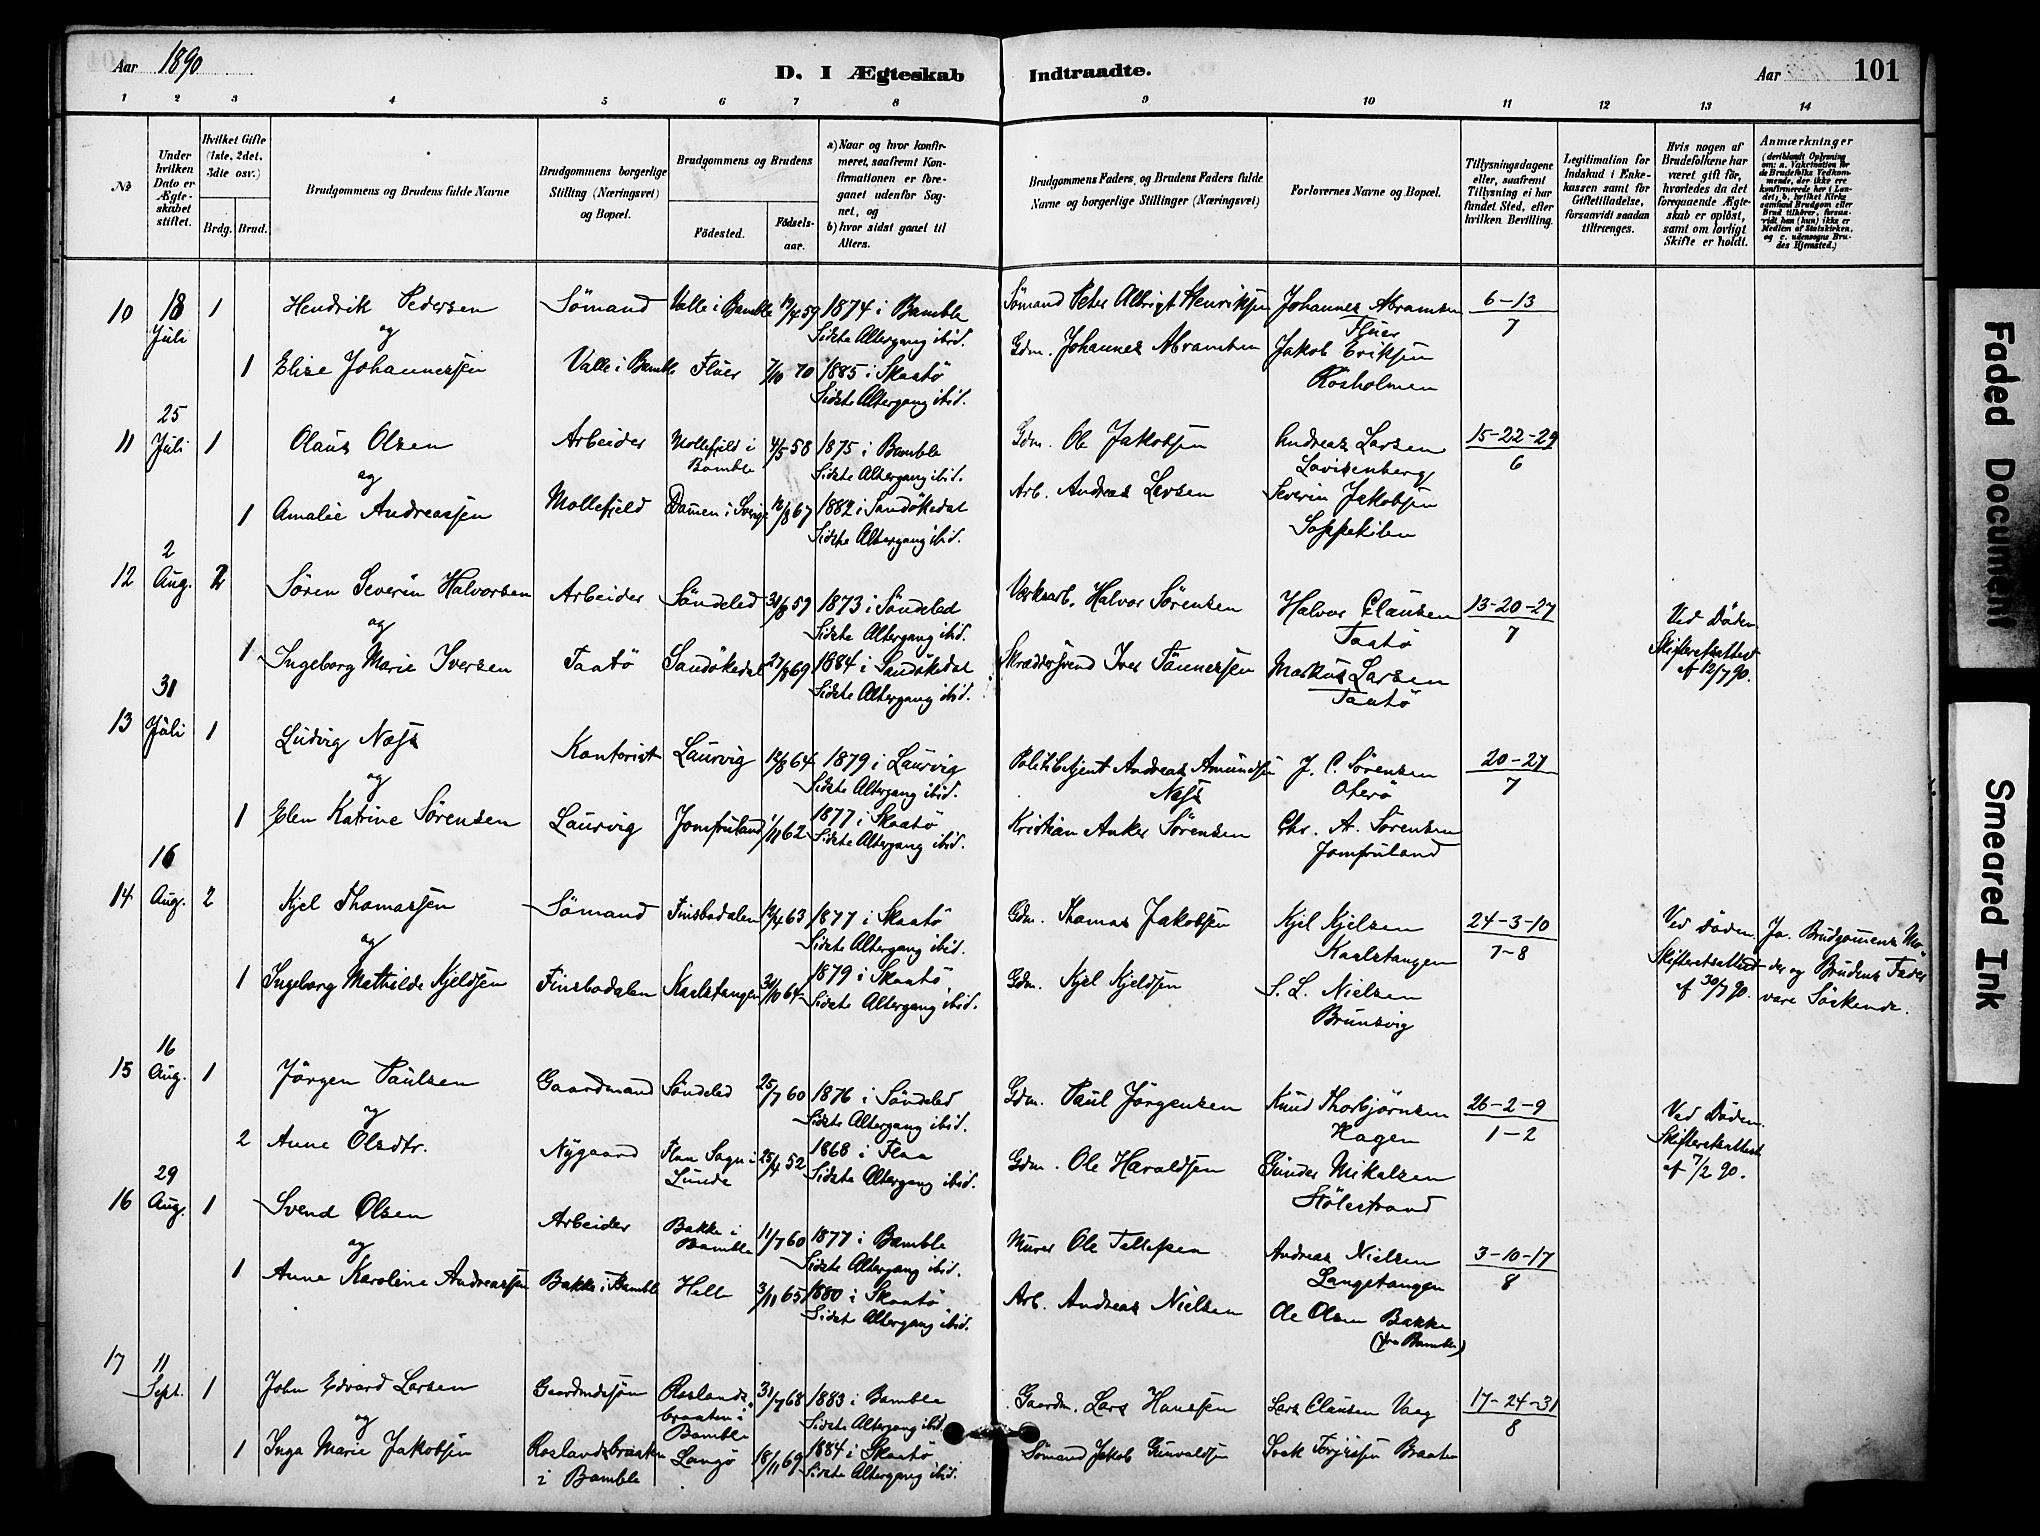 Aar 1890
D. I Ægteskab Indtraadte.
Aar
101
1 2 3 4 5 6 7 8 9 10 11 12 13 14
№
Under hvilken Dato er Ægteskabet stiftet.
Hvilket Gifte (1ste, 2det, 3die osv.)
Brdg. Brud.
Brudgommens og Brudens fulde Navne
Brudgommens borgerlige Stilling (Næringsvei) og Bopæl.
Brudgommens og Brudens
Födested.
Födsels-aar.
a) Naar og hvor konfirmeret, saafremt Konfirmationen er foregaaet udenfor Sognet, og
b) hvor sidst gaaet til Alters.
Brudgommens Faders og Brudens Faders fulde Navne og borgerlige Stillinger (Næringsvei)
Forlovernes Navne og Bopæl.
Tillysningsdagene eller, saafremt Tillysning ei har fundet Sted, efter hvilken Bevilling.
Legitimation for Indskud i Enkekassen samt for Giftetilladelse, forsaavidt saadan tiltrænges.
Hvis nogen af Brudefolkene har været gift før, hvorledes da det foregaaende Ægteskab er oplöst, samt om lovligt Skifte er holdt.
Anmærkninger
(deriblandt Oplysning om: a. Vakcination for de Brudefolks Vedkommende, der ikke ere konfirmerede her i Landet; b. hvilket Kirkesamfund Brudgom eller Brud tilhörer, forsaavidt han (hun) ikke er Medlem af Statskirken, og c. udensogns Brudes Hjemsted.)
10 18 Juli 1 Hendrik Pedersen Sömand Valle i Bamble 19/4 59 1874 i Bamble Sidste Altergang ibid. Sömand Peter Albrigt Henriksen Johannes Abramsen Fluer 6-13/7
og
1 Elise Johannessen Valle i Bamble Fluer 7/10 70 1885 i Skaatö Sidste Altergang ibid. Gdm. Johannes Abramsen Jakob Eriksen Rosholmen
11 25 Juli 1 Olaus Olsen Arbeider Mollefjeld i Bamble 4/5 58 1875 i Bamble Sidste Altergang ibid. Gdm. Ole Jakobsen Andreas Larsen Lovisenberg 15-22-29/6
og
1 Amalie Andreassen Mollefjeld Damen i Sverige 12/8 67 1882 i Sandökedal Sidste Altergang ibid. Arb. Andreas Larsen Severin Jakobsen Soppekilen
12 2 Aug. 2 Sören Severin Halvorsen Arbeider Söndeled 31/8 59 1873 i Söndeled Sidste Altergang ibid. Værksarb. Halvor Sörensen Halvor Clausen Taatö 13-20-27/7 Ved Döden. Skifteretsattest af 12/7 90.
og
1 Ingeborg Marie Iversen Taatö Sandökedal 27/8 69 1884 i Sandökedal Sidste Altergang ibid. Skræddersvend Iver Tönnessen Markus Larsen Taatö
13 31 Juli 1 Ludvig Næss Kontorist Laurvig 12/8 64 1879 i Laurvig Sidste Altergang ibid. Politibetjent Andreas Amundsen Næss J. C. Sörensen Oterö 20-27/7
og
1 Elen Katrine Sörensen Laurvig Jomfruland 1/11 62 1877 i Skaatö Sidste Altergang ibid. Kristian Anker Sörensen Chr. A. Sörensen Jomfruland
14 16 Aug. 2 Kjel Thomassen Sömand Finsbodalen 12/4 63 1877 i Skaatö Sidste Altergang ibid. Gdm. Thomas Jakobsen Kjel Kjelsen Karlstangen 24-3-10/7-8 Ved Döden. Skifteretsattest af 30/7 90. Ja. Brudgomens Moder og Brudens Fader vare Söskende.
og
1 Ingeborg Mathilde Kjeldsen Finsbodalen Karlstangen 31/10 64 1879 i Skaatö Sidste Altergang ibid. Gdm. Kjel Kjeldsen S. L. Nielsen Brunsvig
15 16 Aug. 1 Jörgen Paulsen Gaardmand Söndeled 25/7 60 1876 i Söndeled Sidste Altergang ibid. Gdm. Paul Jörgensen Knud Thorbjörnsen Hagen 26-2-9/1-2 Ved Döden. Skifteretsattest af 7/2 90.
og
2 Anne Olsdtr. Nygaard Flaa Sogn i Lunde 25/4 52 1868 i Flaa Sidste Altergang ibid. Gdm. Ole Haraldsen Gunder Mikalsen Stölestrand
16 29 Aug. 1 Svend Olsen Arbeider Bakke i Bamble 11/7 60 1877 i Bamble Sidste Altergang ibid. Murer Ole Tellefsen Andreas Nielsen Langstangen 3-10-17/8
og
1 Anne Karoline Andreassen Bakke i Bamble Helle 3/11 65 1880 i Skaatö Sidste Altergang ibid. Arb. Andreas Nielsen Ole Olsen Bakke (fra Bamble)
17 11 Sept. 1 John Edvard Larsen Gaardmdssön Roslandsbraaten i Bamble 31/7 68 1883 i Bamble Sidste Altergang ibid. Gaardm. Lars Hansen Lars Clausen Vaag 17-24-31/8
og
1 Inga Marie Jakobsen Roslandsbraaten i Bamble Langö 18/11 69 1884 i Skaatö Sidste Altergang ibid. Sömand Jakob Gunvaldsen Isak Torjussen Braaten
Faded Document
Smeared Ink